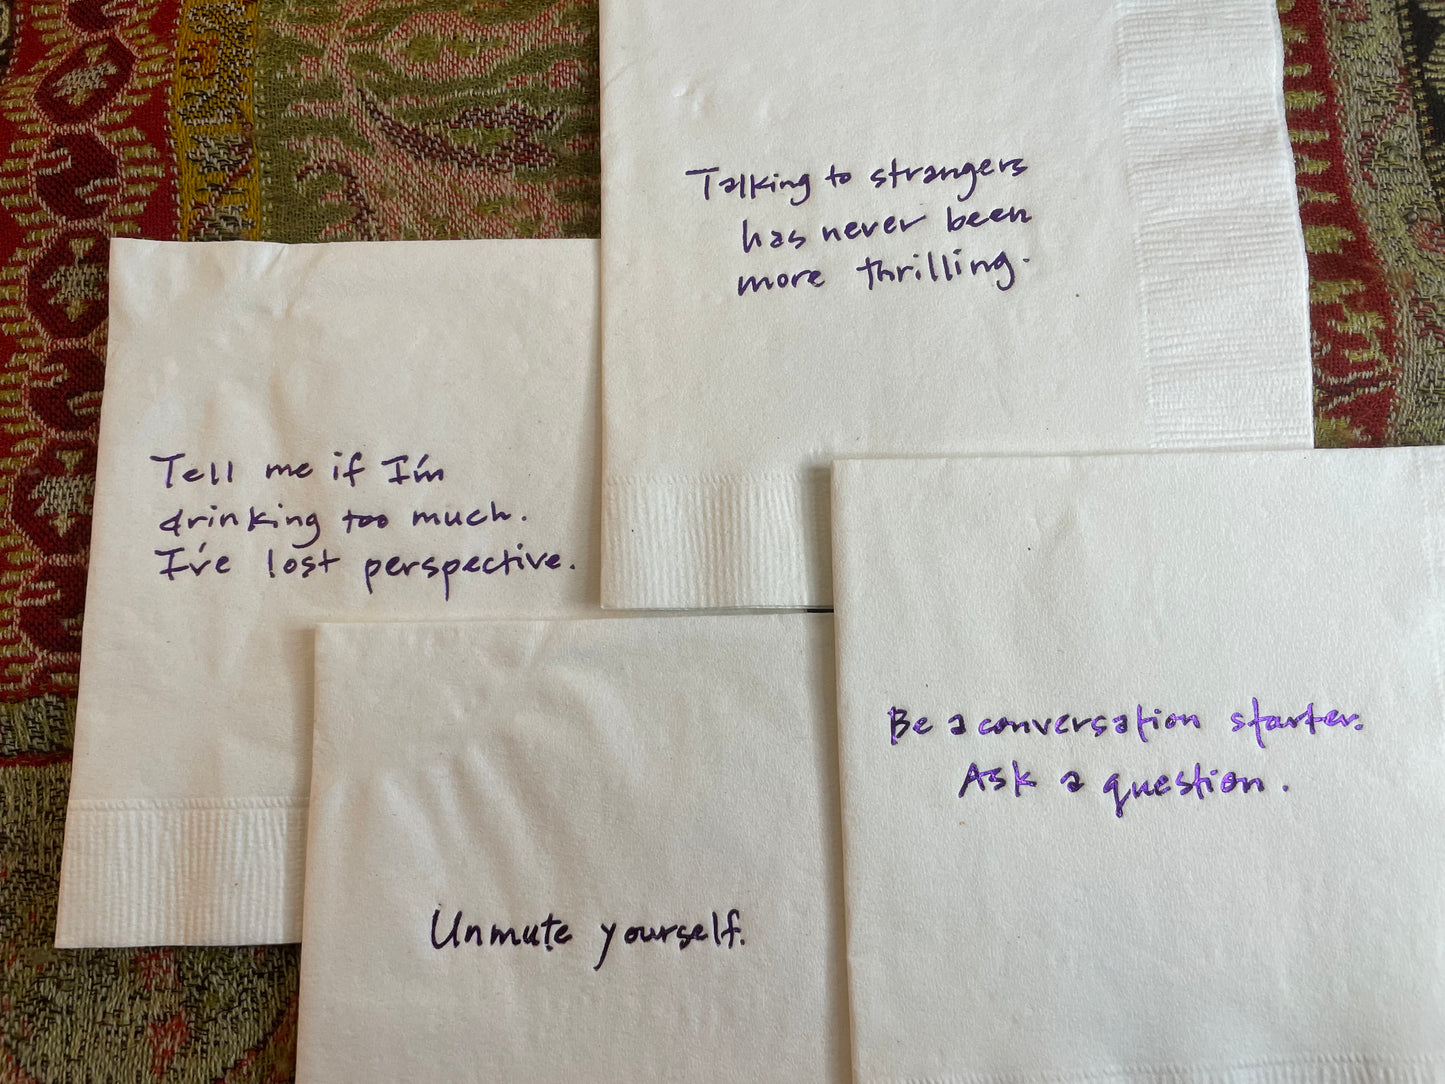 Talking to strangers
has never been
more thrilling.
Tell me if I'm
drinking too much.
I've lost perspective.
Be a conversation starter.
Ask a question.
Unmute yourself.